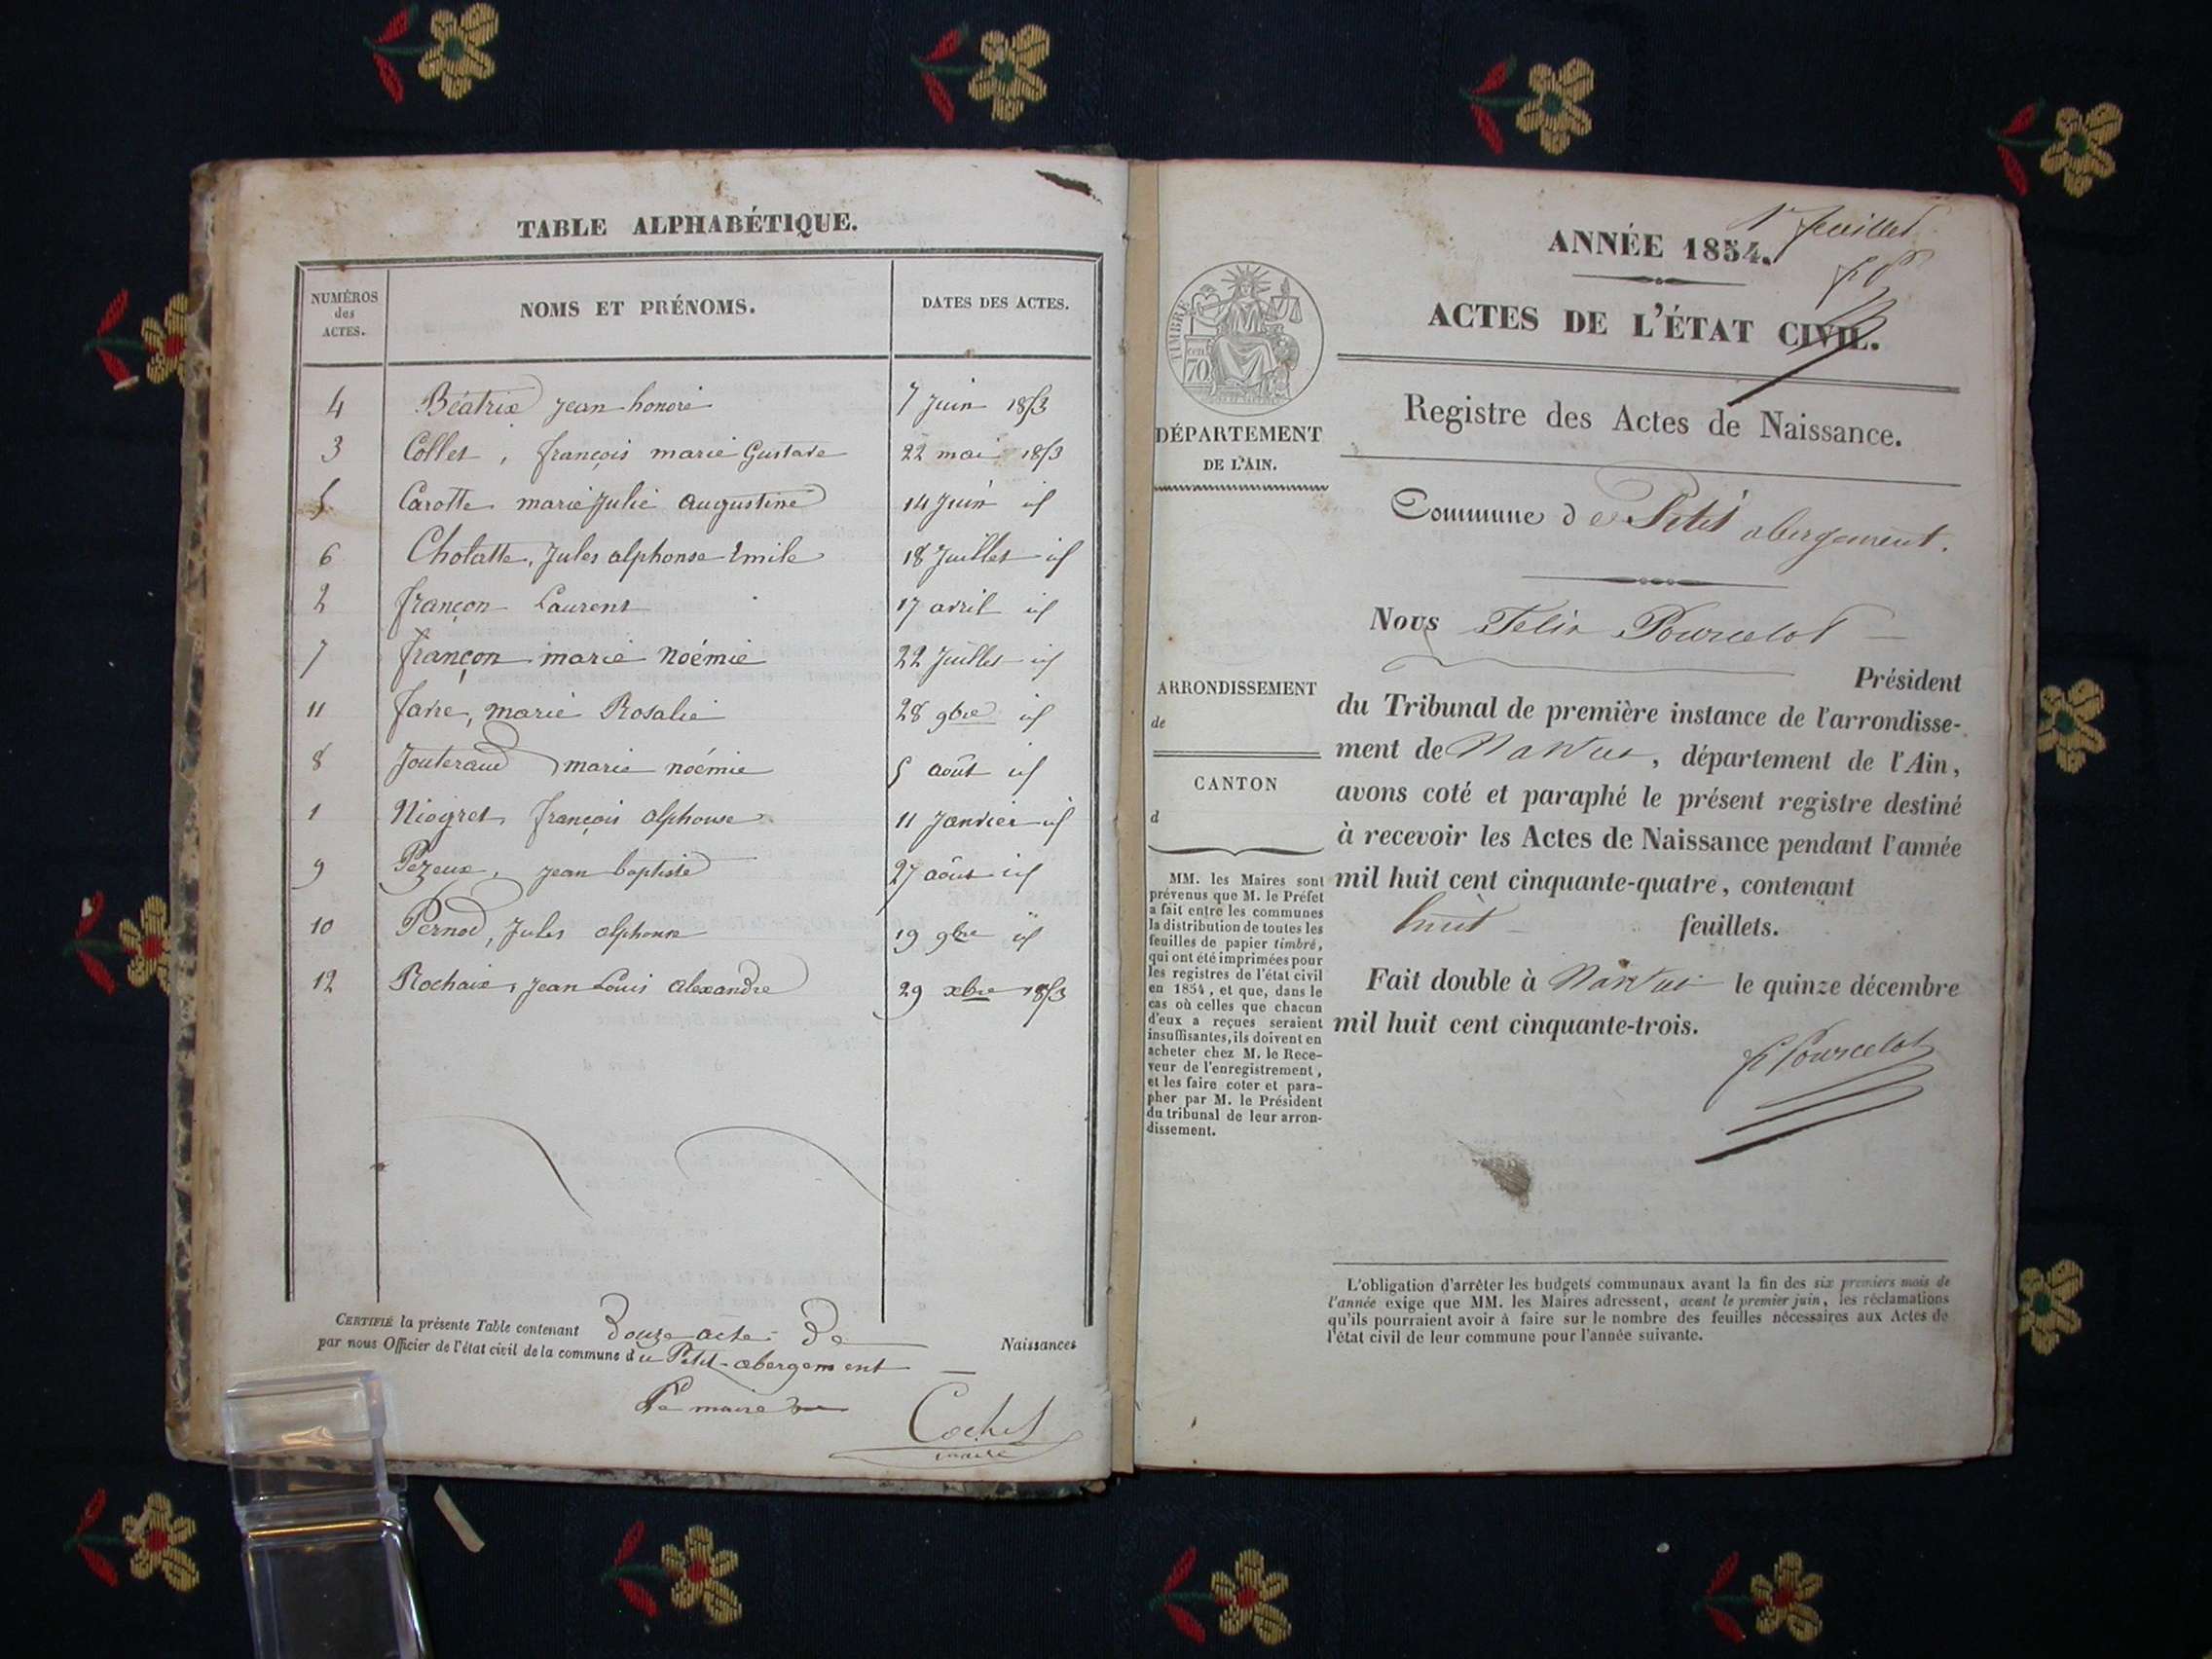 TABLE ALPHABÉTIQUE.
NUMÉROS
des
ACTES.
NOMS ET PRÉNOMS.
DATES DES ACTES.
4 Béatrix jean honoré 7 juin 1853
3 Collet, françois marie Gustave 22 mai 1853
5 Carotte marie julie augustine 14 juin id
6 Cholatte, jules alphonse Emile 18 juillet id
2 françon Laurent 17 avril id
7 françon marie noémie 22 juillet id
11 favre, marie Rosalie 28 9bre id
8 Jouteraud marie noémie 5 août id
1 Niogret françois alphonse 11 janvier id
9 Pezeux, jean baptiste 27 août id
10 Pernod, jules alphonse 19 9bre id
12 Rochaix, jean Louis alexandre 29 xbre 1853
CERTIFIÉ la présente Table contenant Douze actes De Naissances
par nous Officier de l'état civil de la commune du Petit-abergement
Le maire
Cochet
maire
1er feuillet
ANNÉE 1854.
ACTES DE L'ÉTAT CIVIL.
TIMBRE
70 cen
Registre des Actes de Naissance.
DÉPARTEMENT
DE L'AIN.
Commune de Petit abergement.
Nous Félix Pourcelot
Président
ARRONDISSEMENT
de
CANTON
d
du Tribunal de première instance de l'arrondisse-
ment de Nantua, département de l'Ain,
avons coté et paraphé le présent registre destiné
à recevoir les Actes de Naissance pendant l'année
mil huit cent cinquante-quatre, contenant
huit feuillets.
Fait double à Nantua le quinze décembre
mil huit cent cinquante-trois.
F Pourcelot
MM. les Maires sont
prévenus que M. le Préfet
a fait entre les communes
la distribution de toutes les
feuilles de papier timbré,
qui ont été imprimées pour
les registres de l'état civil
en 1854, et que, dans le
cas où celles que chacun
d'eux a reçues seraient
insuffisantes, ils doivent en
acheter chez M. le Rece-
veur de l'enregistrement,
et les faire coter et para-
pher par M. le Président
du tribunal de leur arron-
dissement.
L'obligation d'arrêter les budgets communaux avant la fin des six premiers mois de
l'année exige que MM. les Maires adressent, avant le premier juin, les réclamations
qu'ils pourraient avoir à faire sur le nombre des feuilles nécessaires aux Actes de
l'état civil de leur commune pour l'année suivante.